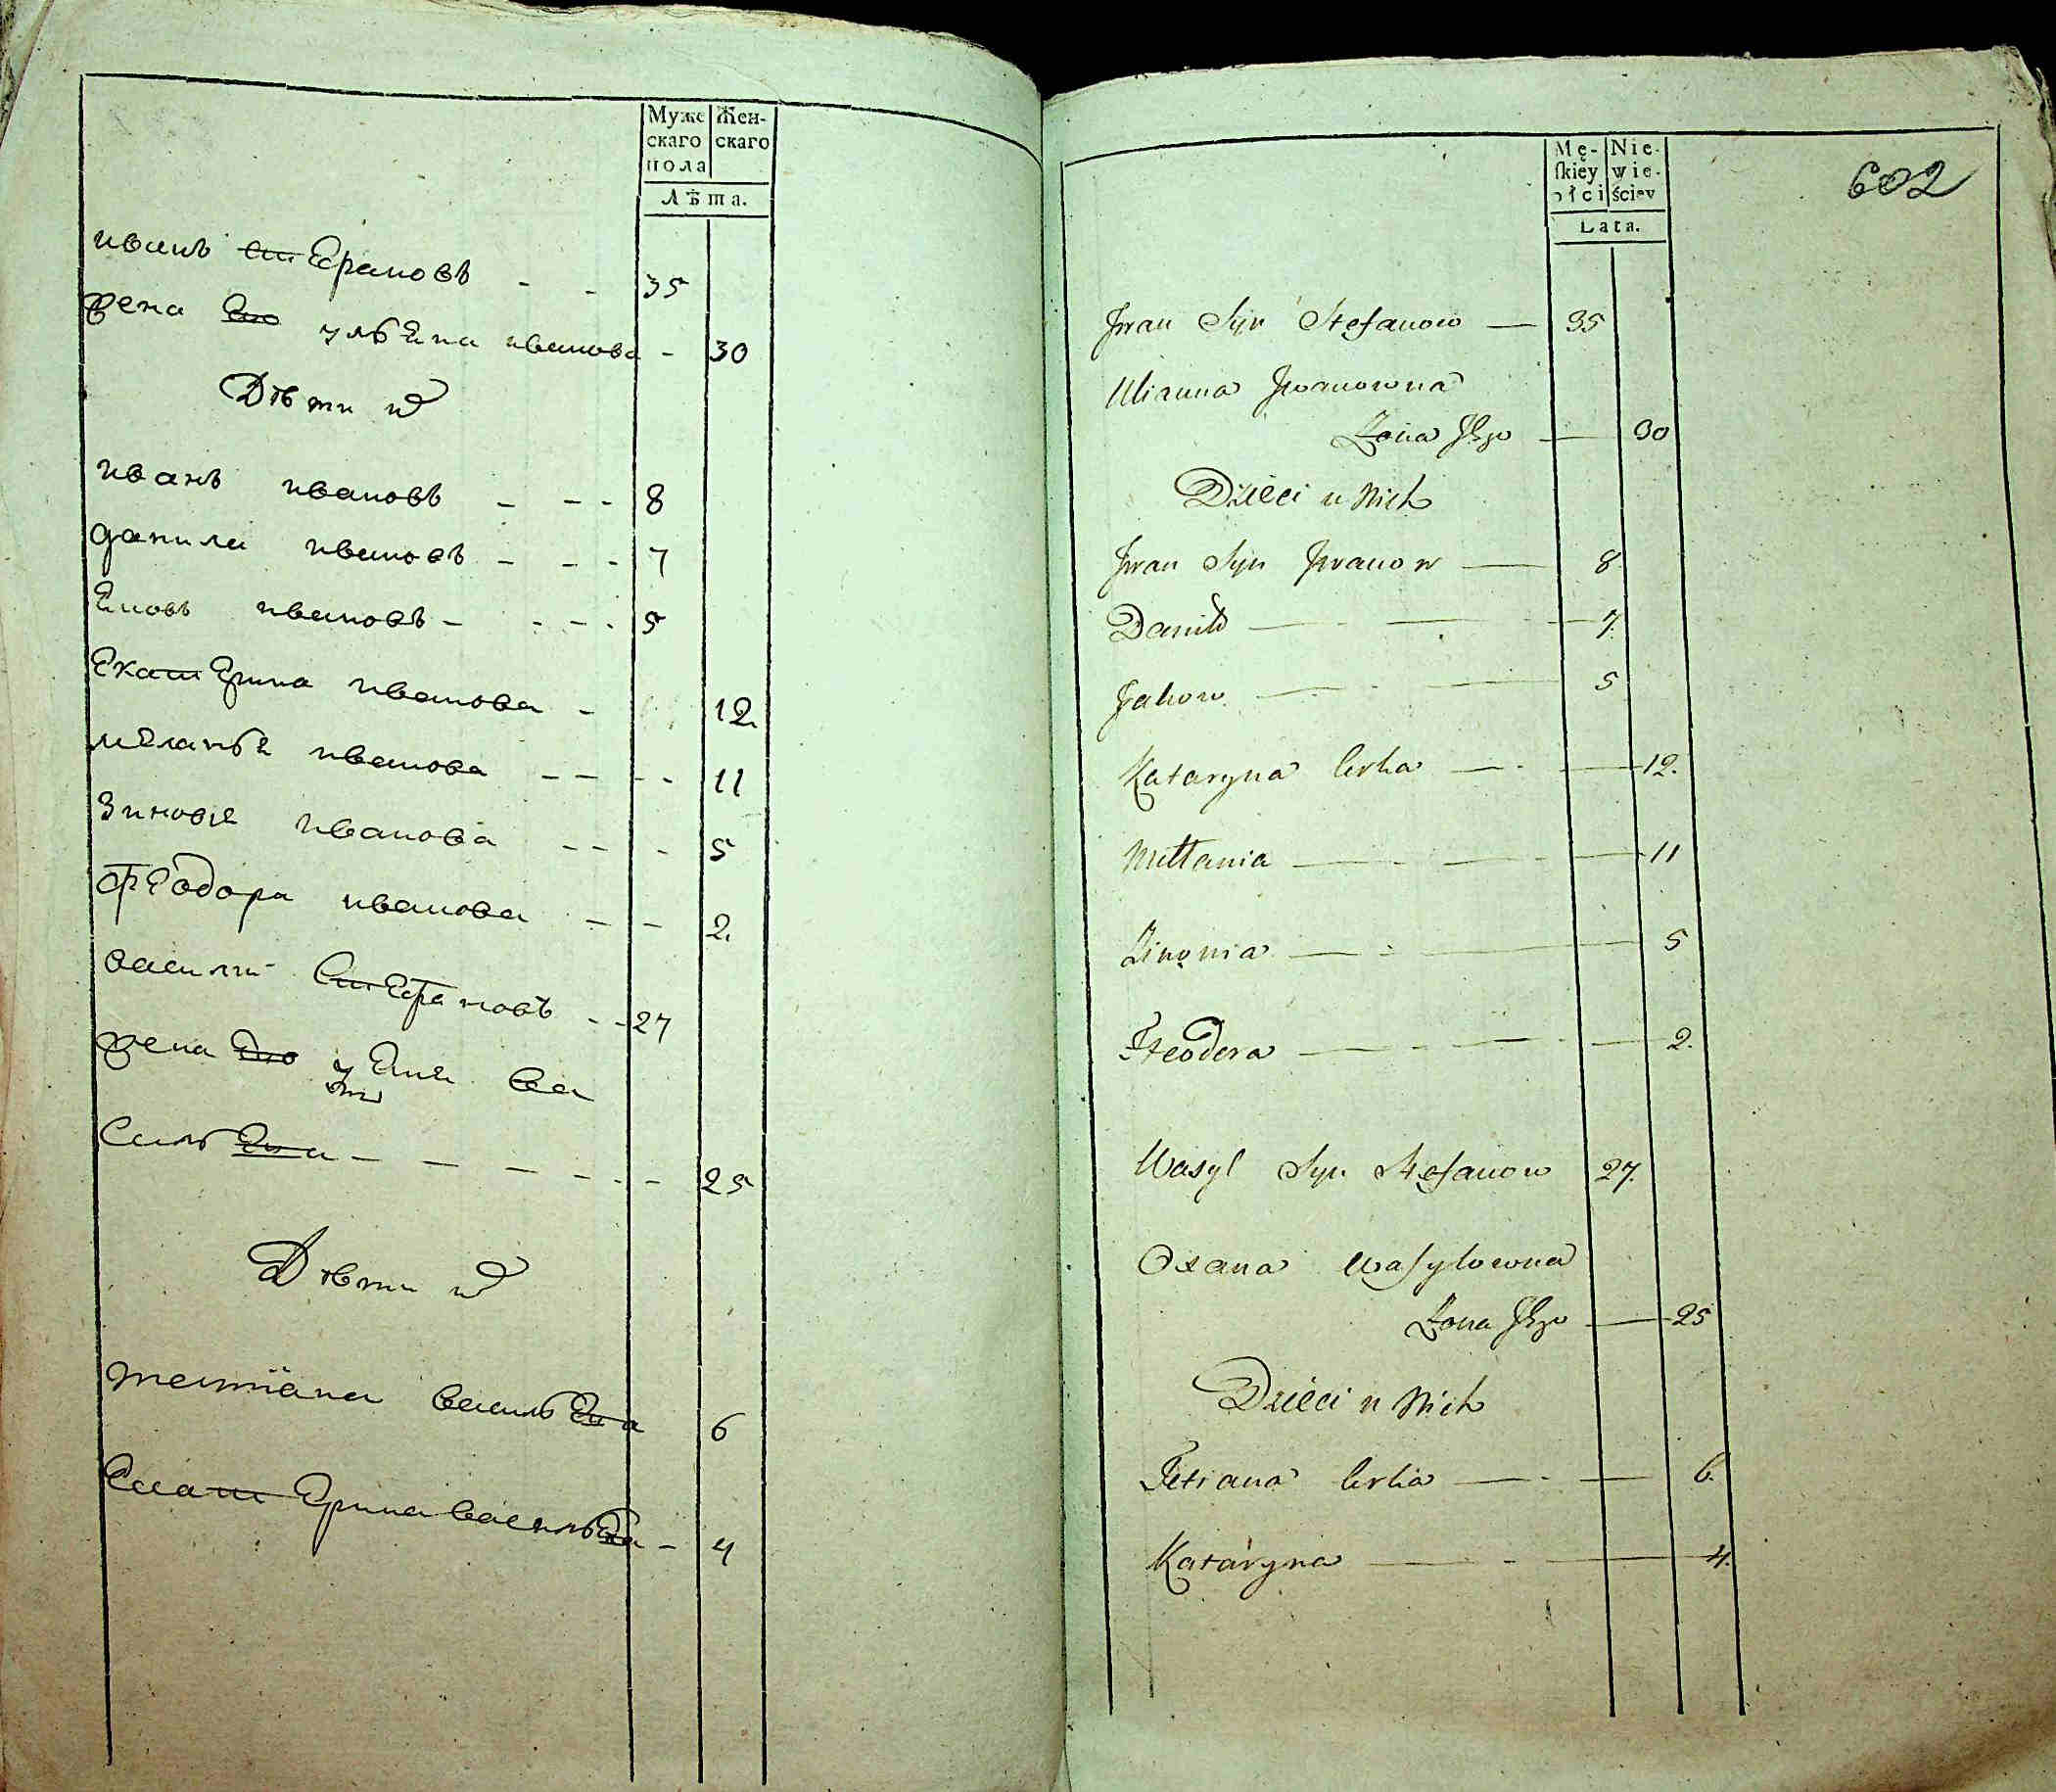 Муже Жен-
скаго скаго
пола
Лѣта.
иванъ стефановъ - - 35
жена его ульяна иванова - 30
Дѣти ихъ
иванъ ивановъ - - - 8
данила ивановъ - - - 7
ивановъ - - - - 5
Екатерина иванова - 12.
меланья иванова - - - - 11
Зиновья иванова - - - 5
Феодора иванова - - 2.
васили Стефановъ - - 27
жена его ва
сильева - - - - - - 25
Дѣти ихъ
татиана васильева 6
Екатерина васильева - 4
602
Mę- Nie-
ſkiey wie-
płci ściey
Lata.
Jwan Syn Stefanow — 35
Ulianna Jwanowna
Żona Jego — 30
Dzieci u Nich
Jwan Syn Jwanow — 8
Daniło — — — 7.
Jakow — — 5
Kataryna Corka — — 12.
Mełłania — — — 11
Zinowia — — 5
Fteodora — — — 2.
Wasyl Syn Stefanow 27.
Oxana Waſylowna
Żona Jego — 25
Dzieci u Nich
Tetiana Corka — — 6.
Kataryna — — — 4.